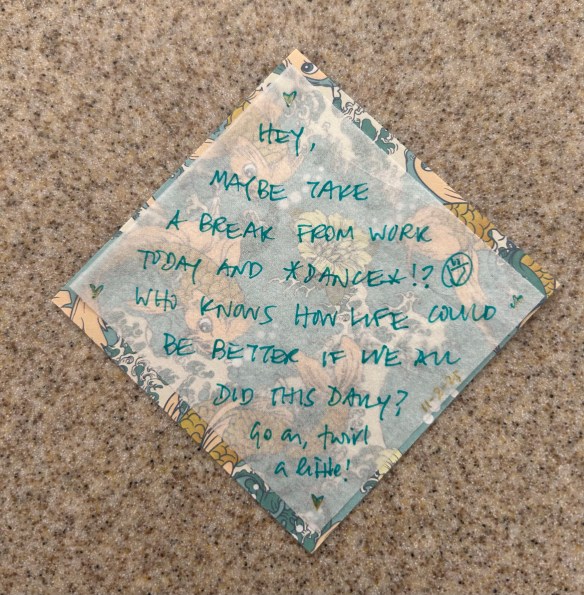 HEY,
MAYBE TAKE
A BREAK FROM WORK
TODAY AND *DANCE*!?
WHO KNOWS HOW LIFE COULD
BE BETTER IF WE ALL
DID THIS DAILY?
Go on, twirl
a little!